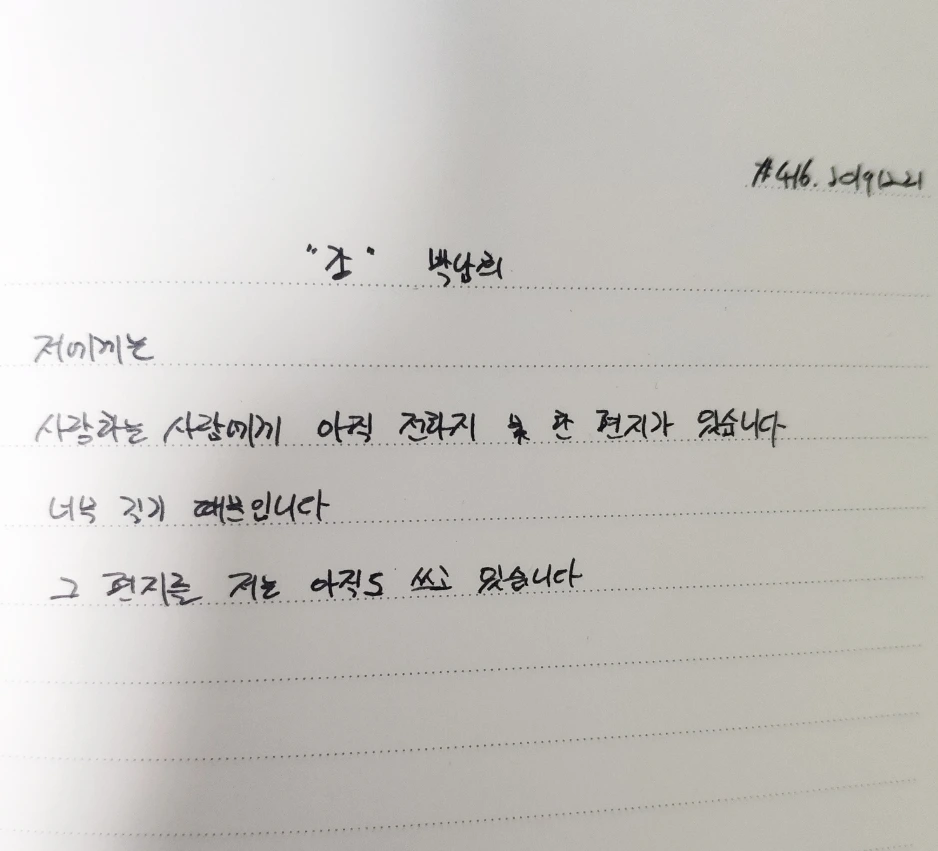 #416. 20191221
"강" 박남희
저에게는
사랑하는 사람에게 아직 전하지 못 한 편지가 있습니다
너무 길기 때문입니다
그 편지를 저는 아직도 쓰고 있습니다